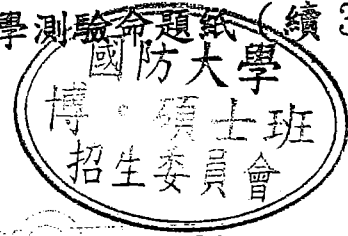 學測驗命題紙(續3
國防大學
博、碩士班
招生委員會